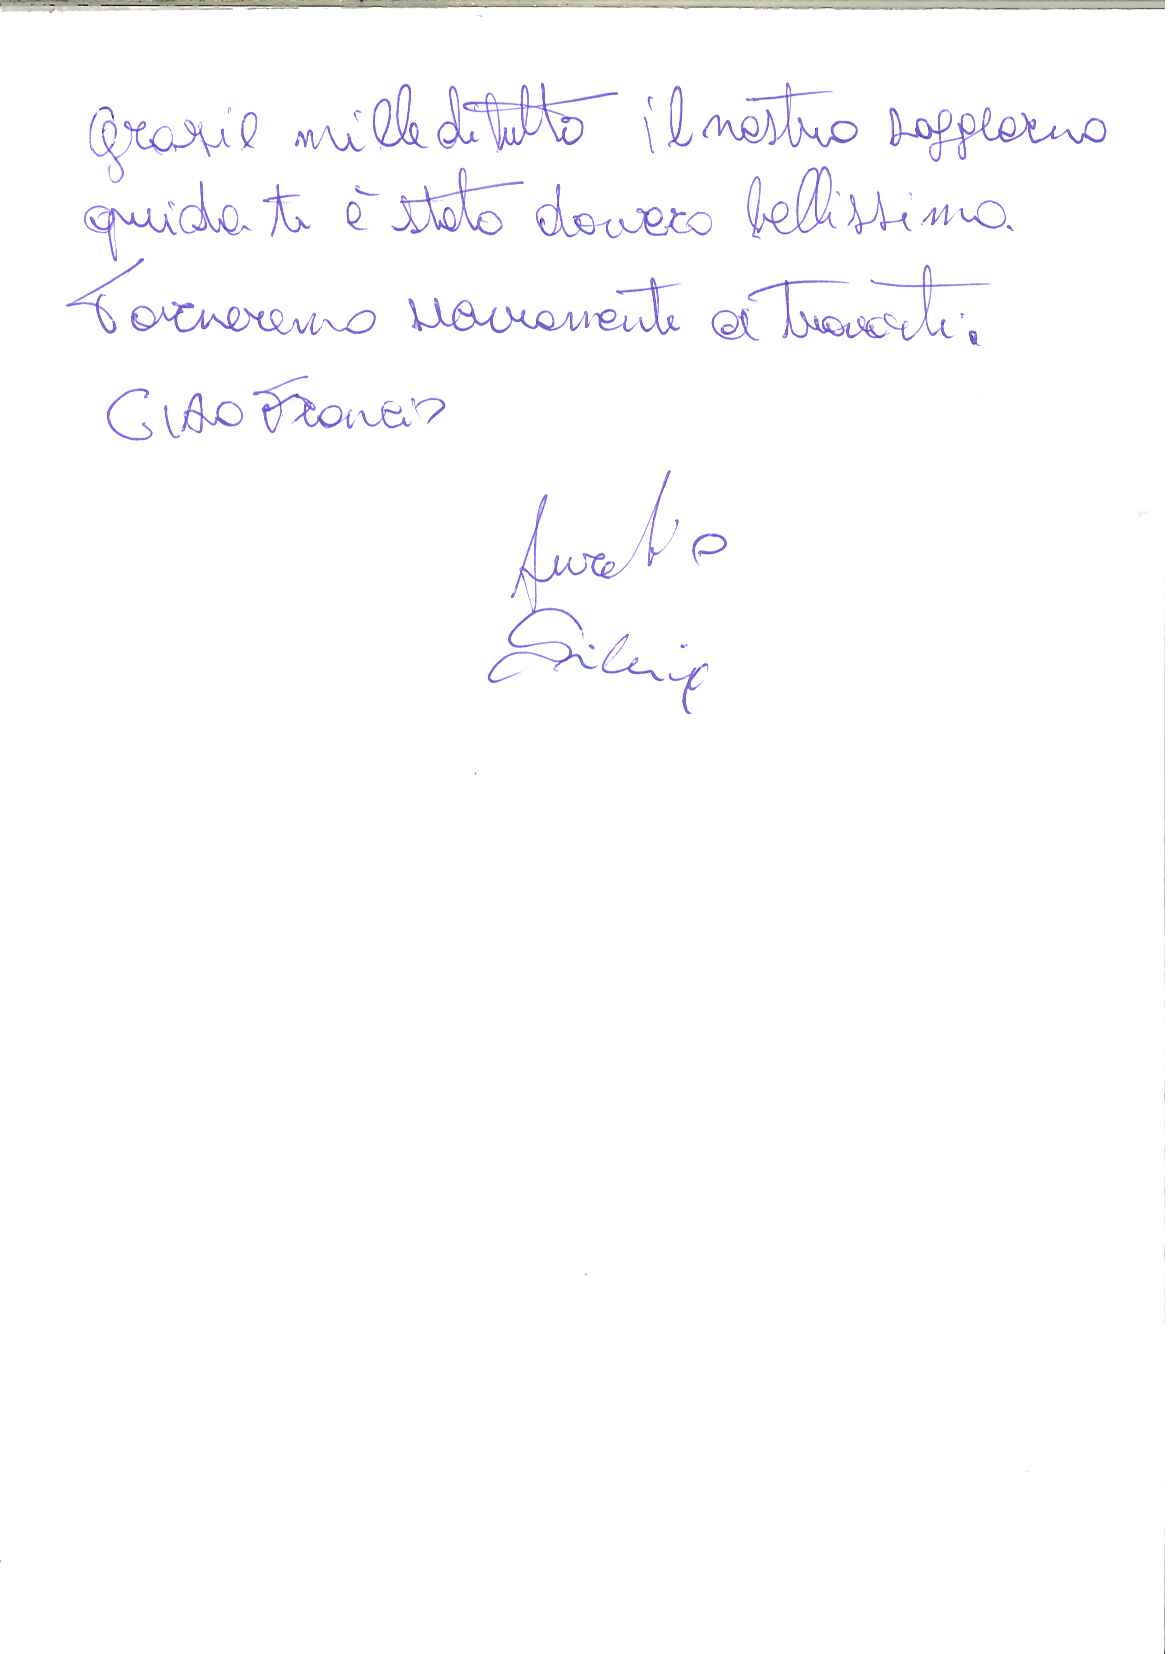 Grazie mille di tutto il nostro soggiorno
qui da te è stato davvero bellissimo.
Torneremo nuovamente a trovarti.
CIAO Francis
Aurelio
Silvia